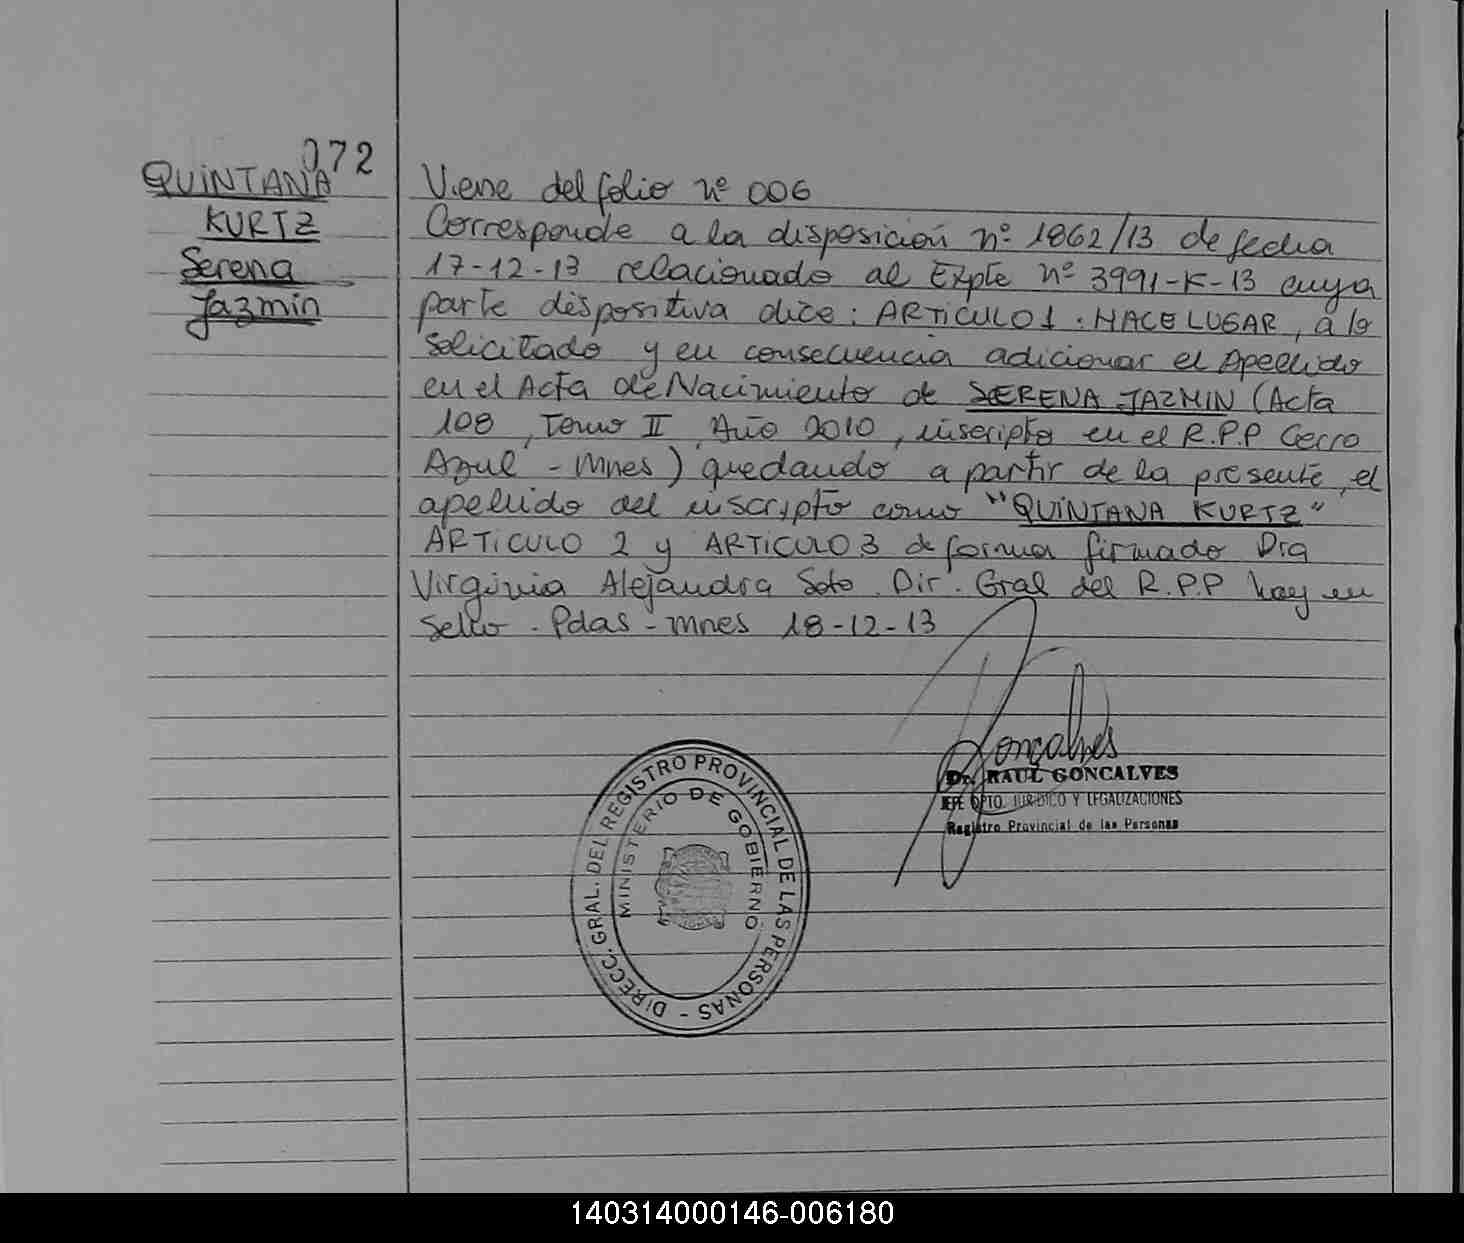 072
QUINTANA
KURTZ
Serena
Jazmin
Viene del folio nº 006
Corresponde a la disposición nº 1862/13 de fecha
17-12-13 relacionado al Expte nº 3991-K-13 cuya
parte dispositiva dice: ARTICULO 1: HACE LUGAR, a lo
solicitado y en consecuencia adicionar el Apellido
en el Acta de Nacimiento de SERENA JAZMIN (Acta
108, Tomo II, Año 2010, inscripta en el R.P.P Cerro
Azul - Mnes) quedando a partir de la presente, el
apellido del inscripto como "QUINTANA KURTZ"
ARTICULO 2 y ARTICULO 3 de forma firmado Dra
Virginia Alejandra Soto. Dir. Gral del R.P.P hay un
Sello - Pdas - Mnes 18-12-13
Goncalves
Dr. RAUL GONCALVES
JEFE DPTO. JURIDICO Y LEGALIZACIONES
Registro Provincial de las Personas
DIRECC. GRAL. DEL REGISTRO PROVINCIAL DE LAS PERSONAS -
MINISTERIO DE GOBIERNO
140314000146-006180